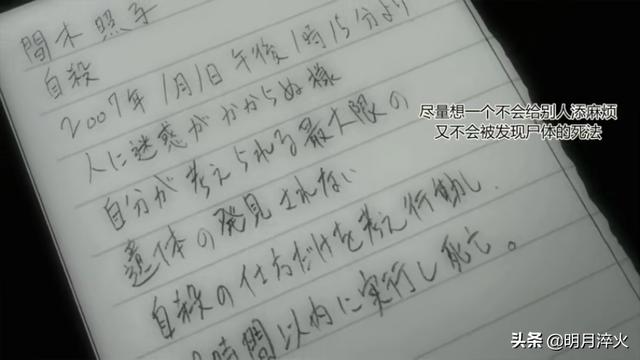 間木 照子
自殺
2007年1月1日午後1時15分より
人に迷惑がかからぬ様
自分が考えられる最大限の
遺体の発見されない
自殺の仕方だけを考え行動し
時間以内に実行し死亡。
尽量想一个不会给别人添麻烦
又不会被发现尸体的死法
头条 @明月淬火